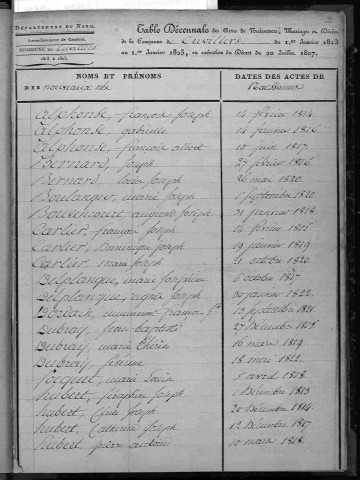 DÉPARTEMENT DU NORD.
Arrondissement de Cambrai.
COMMUNE DE Cuvillers
1813 à 1823.
Table Décennale des Actes de Naissance, Mariage et Décès
de la Commune de Cuvillers du 1.er Janvier 1813
au 1.er Janvier 1823, en exécution du Décret du 20 Juillet 1807.
NOMS ET PRÉNOMS
DES nouveaux nés
DATES DES ACTES DE
Naissance
Alphonse, françois Joseph 14 février 1814.
Alphonse, gabrielle 14 janvier 1816.
Alphonse, françois albert 10 juin 1817.
Bernard, Joseph 27 février 1816.
Bernard, louis Joseph 26 mai 1820.
Boulanger, marie Joseph 5 Septembre 1820.
Boussincourt, augustine Joseph 31 janvier 1818.
Carlier, françois Joseph 14 février 1816.
Carlier, Dominique Joseph 19 janvier 1819.
Carlier, marie Joseph 21 octobre 1820.
Delplanque, marie Joséphine 6 octobre 1817
Delplanque, Joseph 30 janvier 1822.
13 Septembre 1821
Dubray, jean baptiste 27 Décembre 1815.
Dubray, marie thérèse 16 mars 1819.
Dubray, 18 mai 1822.
Focquet, marie louise 5 avril 1818.
hubert, Séraphine Joseph 1 Décembre 1813
hubert, Cécile Joseph 20 Décembre 1814.
hubert, Catherine Joseph 12 Décembre 1817
hubert, pierre antoine 10 mars 1818.